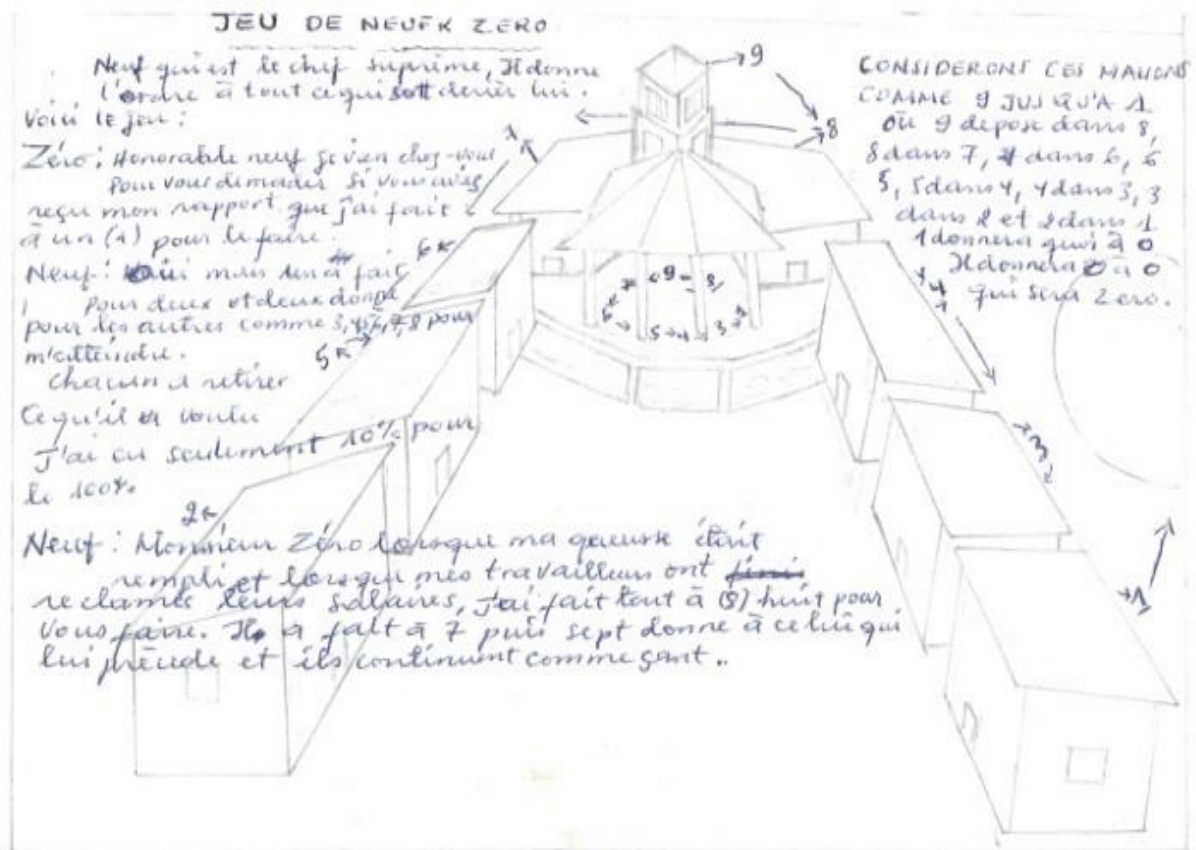 JEU DE NEUFR ZERO
Neuf qui est le chef suprème, Il donne
l'ordre à tout ce qui sott derièr lui.
Voici le jeu :
Zéro : Honorable neuf je vien chez-vous
pour vous demader si vous avez
reçu mon rapport que j'ai fait
à un (1) pour le faire.
Neuf : Oui mais un à fait
pour deux et deux donne
pour les autres comme 3, 4, 5, 6, 7, 8 pour
m'atteindre.
Chacun a retirer
Ce qu'il a voulu
J'ai eu seulement 10% pour
le 100%.
Neuf : Monsieur Zéro lorsque ma queusse était
rempli et lorsque mes travailleurs ont
reclamés leurs salaires, j'ai fait tout à (8) huit pour
vous faire. Il a falt à 7 puis sept donne à celui qui
lui précede et ils continuent comme çant..
CONSIDERONT CES MAISONS
COMME 9 JUSQU'A 1
OU 9 depose dans 8,
8 dans 7, 7 dans 6, 6
5, 5 dans 4, 4 dans 3, 3
dans 2 et 2 dans 1
1 donnera quoi à 0
Il donnera 0 à 0
qui sera Zero.
9
8
7
6
5
2
4
3
1
9 8
7
6
5 4
3 2